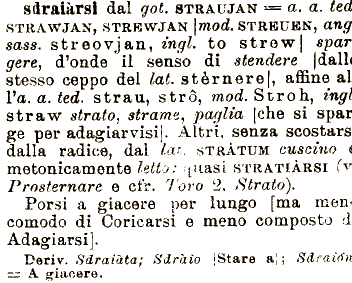 sdraiàrsi dal got. STRAUJAN = a. a. ted
STRAWJAN, STREWJAN [mod. STREUEN, ang
sass. streovjan, ingl. to strew] spar
gere, d'onde il senso di stendere [dall
stesso ceppo del lat. stèrnere], affine al
l'a. a. ted. strau, strô, mod. Stroh, ingl
straw strato, strame, paglia [che si spar
ge per adagiarvisi]. Altri, senza scostars
dalla radice, dal lat. STRÀTUM cuscino e
metonicamente letto: quasi STRATIÀRSI (v
Prosternare e cfr. Toro 2, Strato).
Porsi a giacere per lungo [ma men
comodo di Coricarsi e meno composto d
Adagiarsi].
Deriv. Sdraiàta; Sdràio [Stare a]; Sdraión
= A giacere.